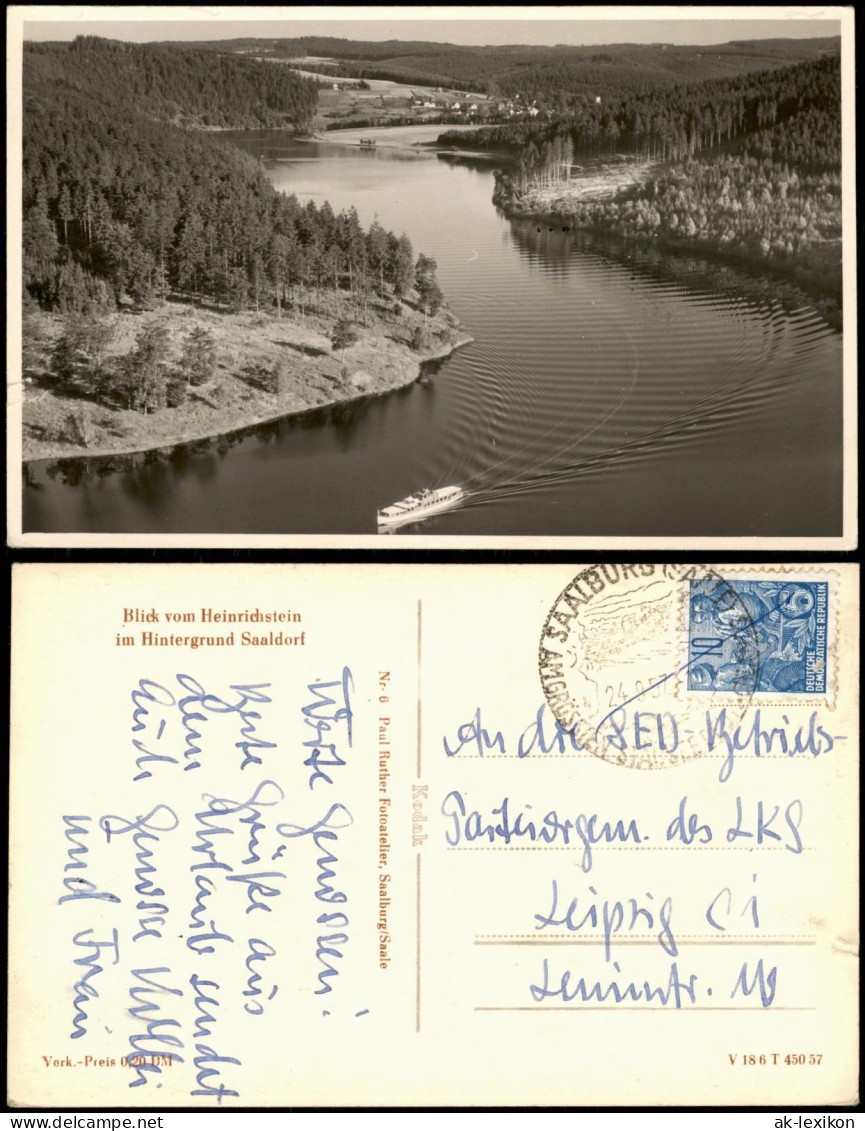 Blick vom Heinrichstein
im Hintergrund Saaldorf
Werte Genossen!
Beste Grüße aus
dem Urlaub sendet
Euch Genosse
und Frau
Nr. 6 Paul Ruther Fotoatelier, Saalburg/Saale
Kodak
SAALBURG (SAALE)
24.9.57
10
DEUTSCHE
DEMOKRATISCHE REPUBLIK
An die SED-Betriebs-
Parteiorgan. des LKG
Leipzig C1
Leninstr. 16
Verk.-Preis 0,20 DM
V 18 6 T 450 57
ak-lexikon